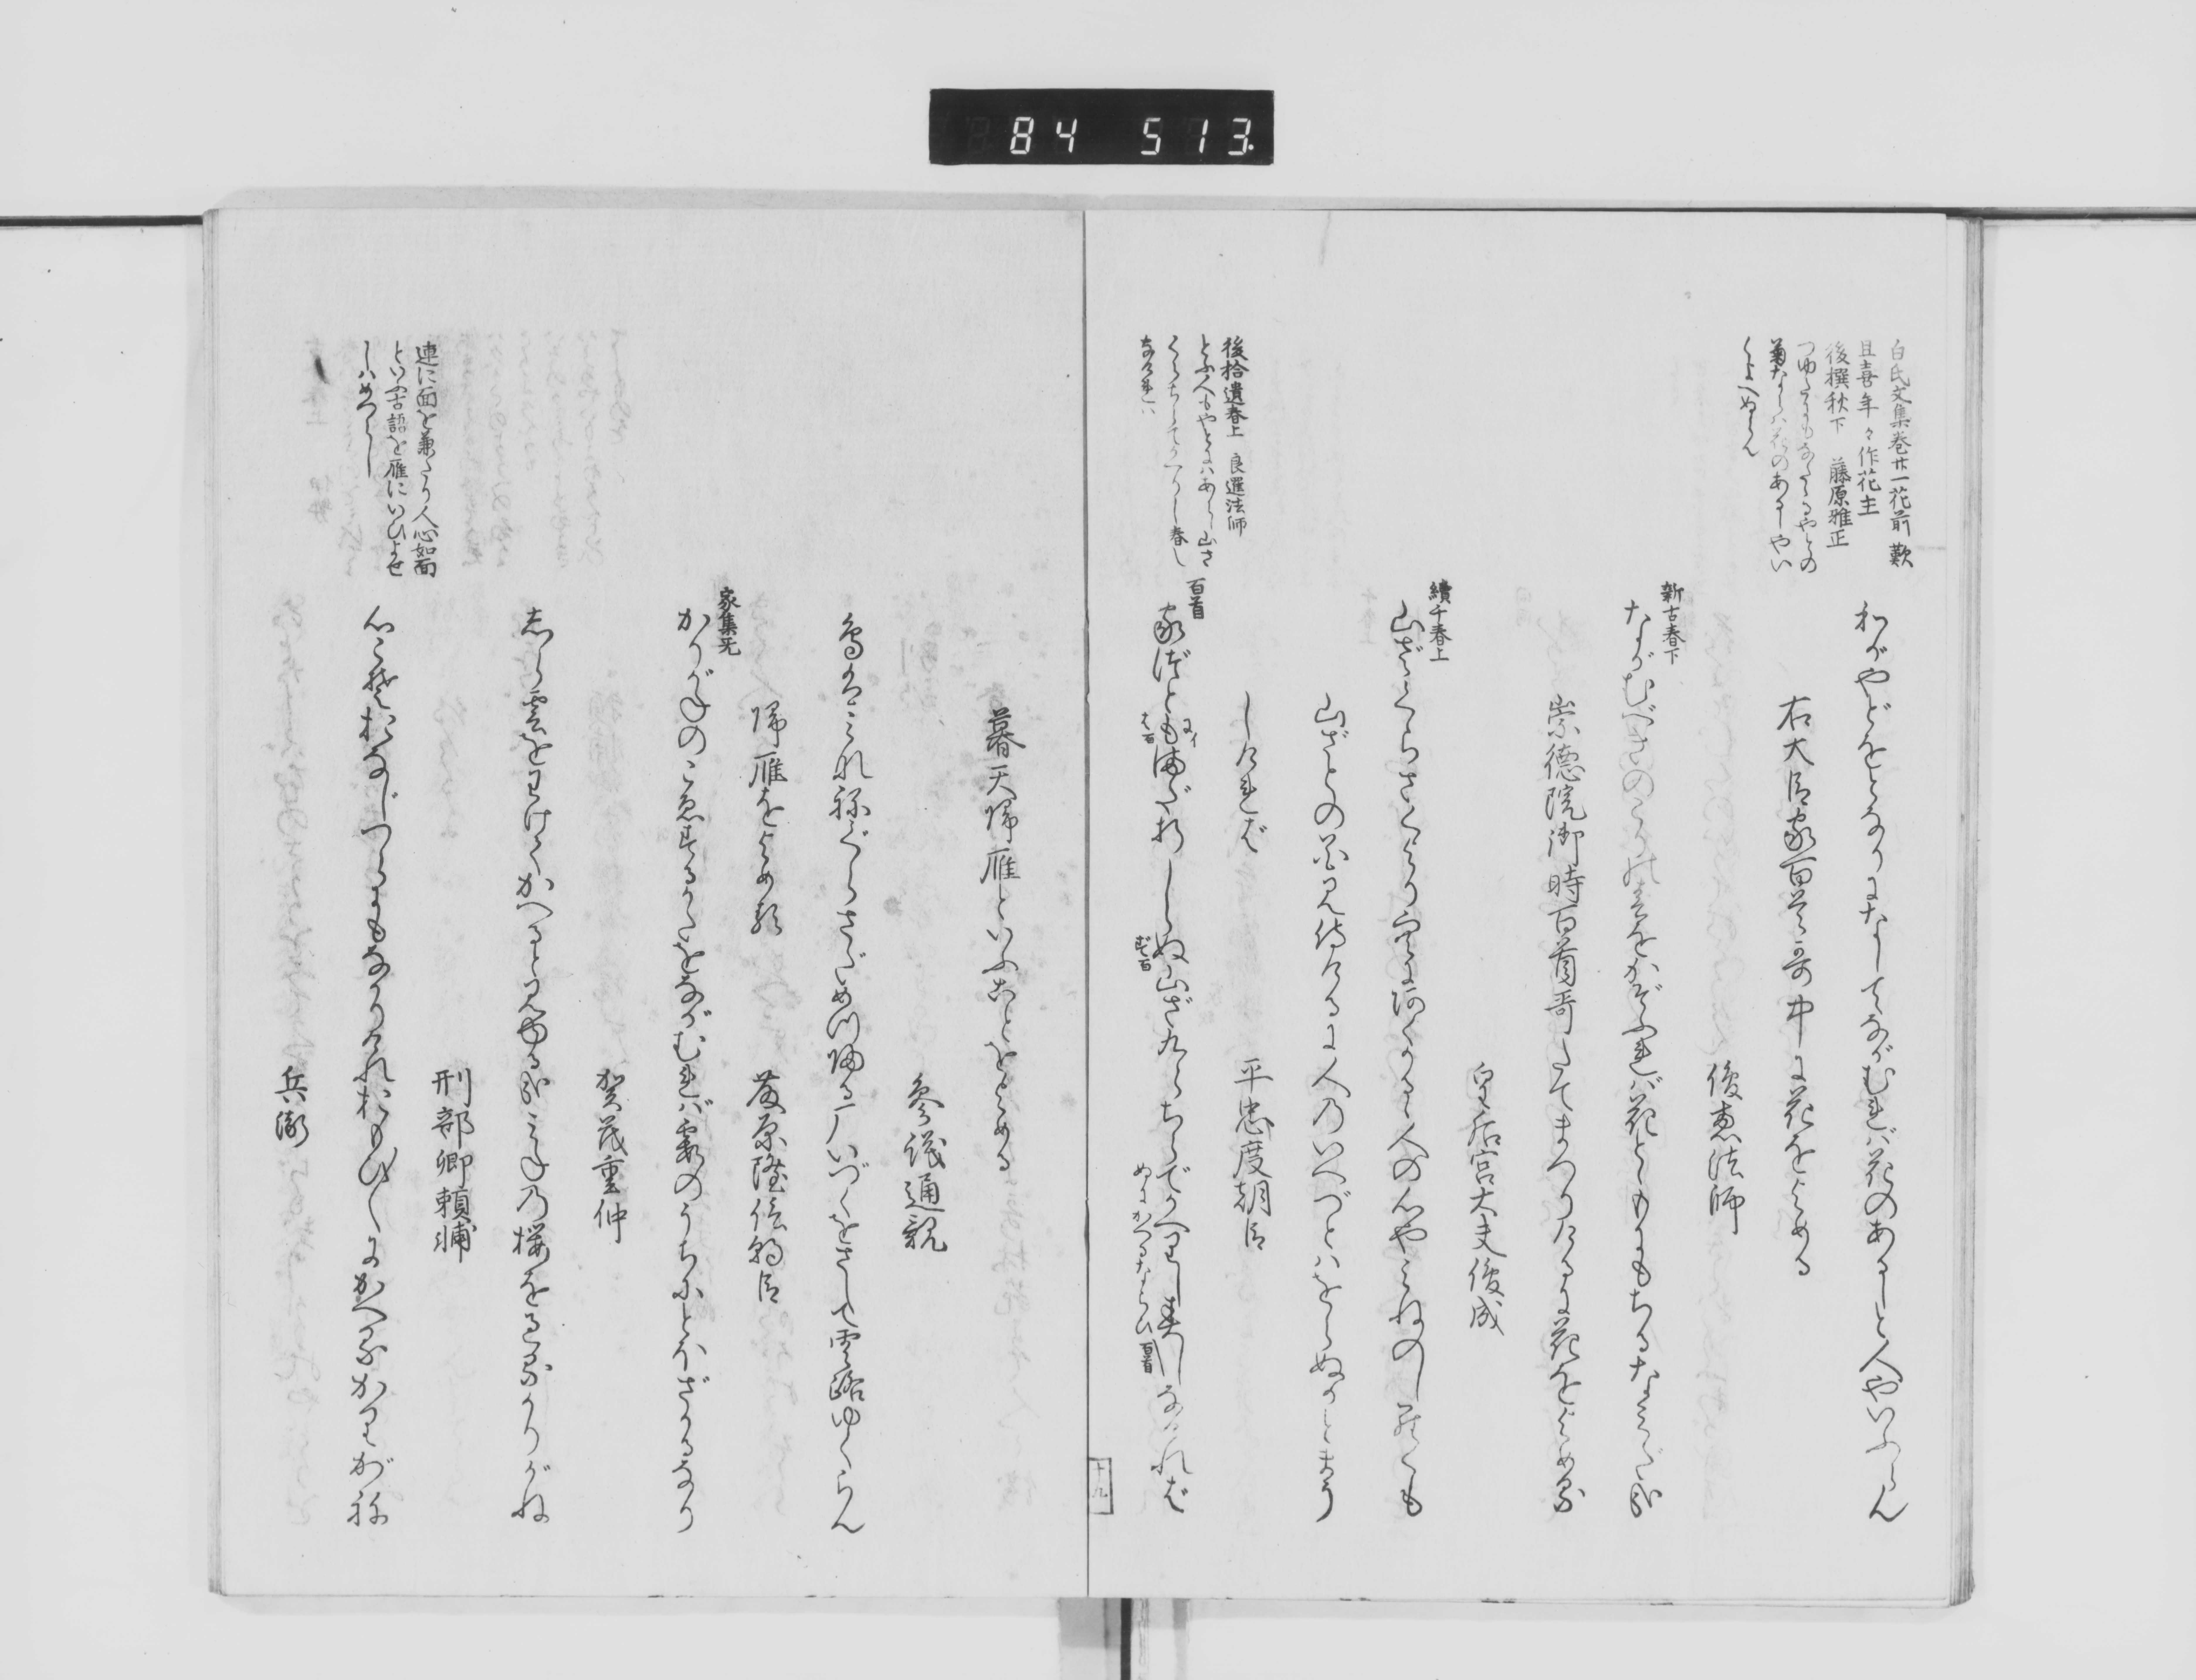 84 513.
白氏文集巻廿一花前歎
且喜年々作花主
後撰秋下　藤原雅正
つゆたにもなたゝるやとの
菊ならは花のあるしやい
くよへぬらん
わがやどをとなりになしてながむればば花のあるじと人やいふらん
右大臣家百首哥中に花をよめる
俊恵法師
新古春下
ながむべきのこりの春をかぞふれば花とゝもにもちるなみだ哉
崇徳院御時百首哥たてまつりけるに花をよめる
皇后宮大夫俊成
續千春上
山ざくらさくより空にあくがるゝ人の心やみねのしら雲
山ざとの花見侍けるに人のいへづとはをらぬかとまう
しければ
平忠度朝臣
後拾遺春上　良暹法師
とふ人もやとにはあらし山さ
くらちらてかへりし春し
なければ
百首
家づともまだ折しらぬ山ざくらちらでかへりし春しなければ
にイ
は百
ず百
めにかへるならひ 百首
十九
暮天帰雁といふことをよめる
参議通親
鳥はみなねぐらさだめつ帰る厂いづくをさして雲路ゆくらん
帰雁をよめる
藤原隆信朝臣
家集无
かりがねのこゑするかたをながむれば霞のうちにとほざかるなり
賀茂重仲
しら雲をわけてかへると見ゆる哉みねの桜をすぐるかりがね
刑部卿頼輔
連に面を兼たり人心如面
といふ古語を雁にいひよせ
しはめつらし
心こそおなじつらにもなかりけれおもひ〳〵にかへるかりがね
兵衛